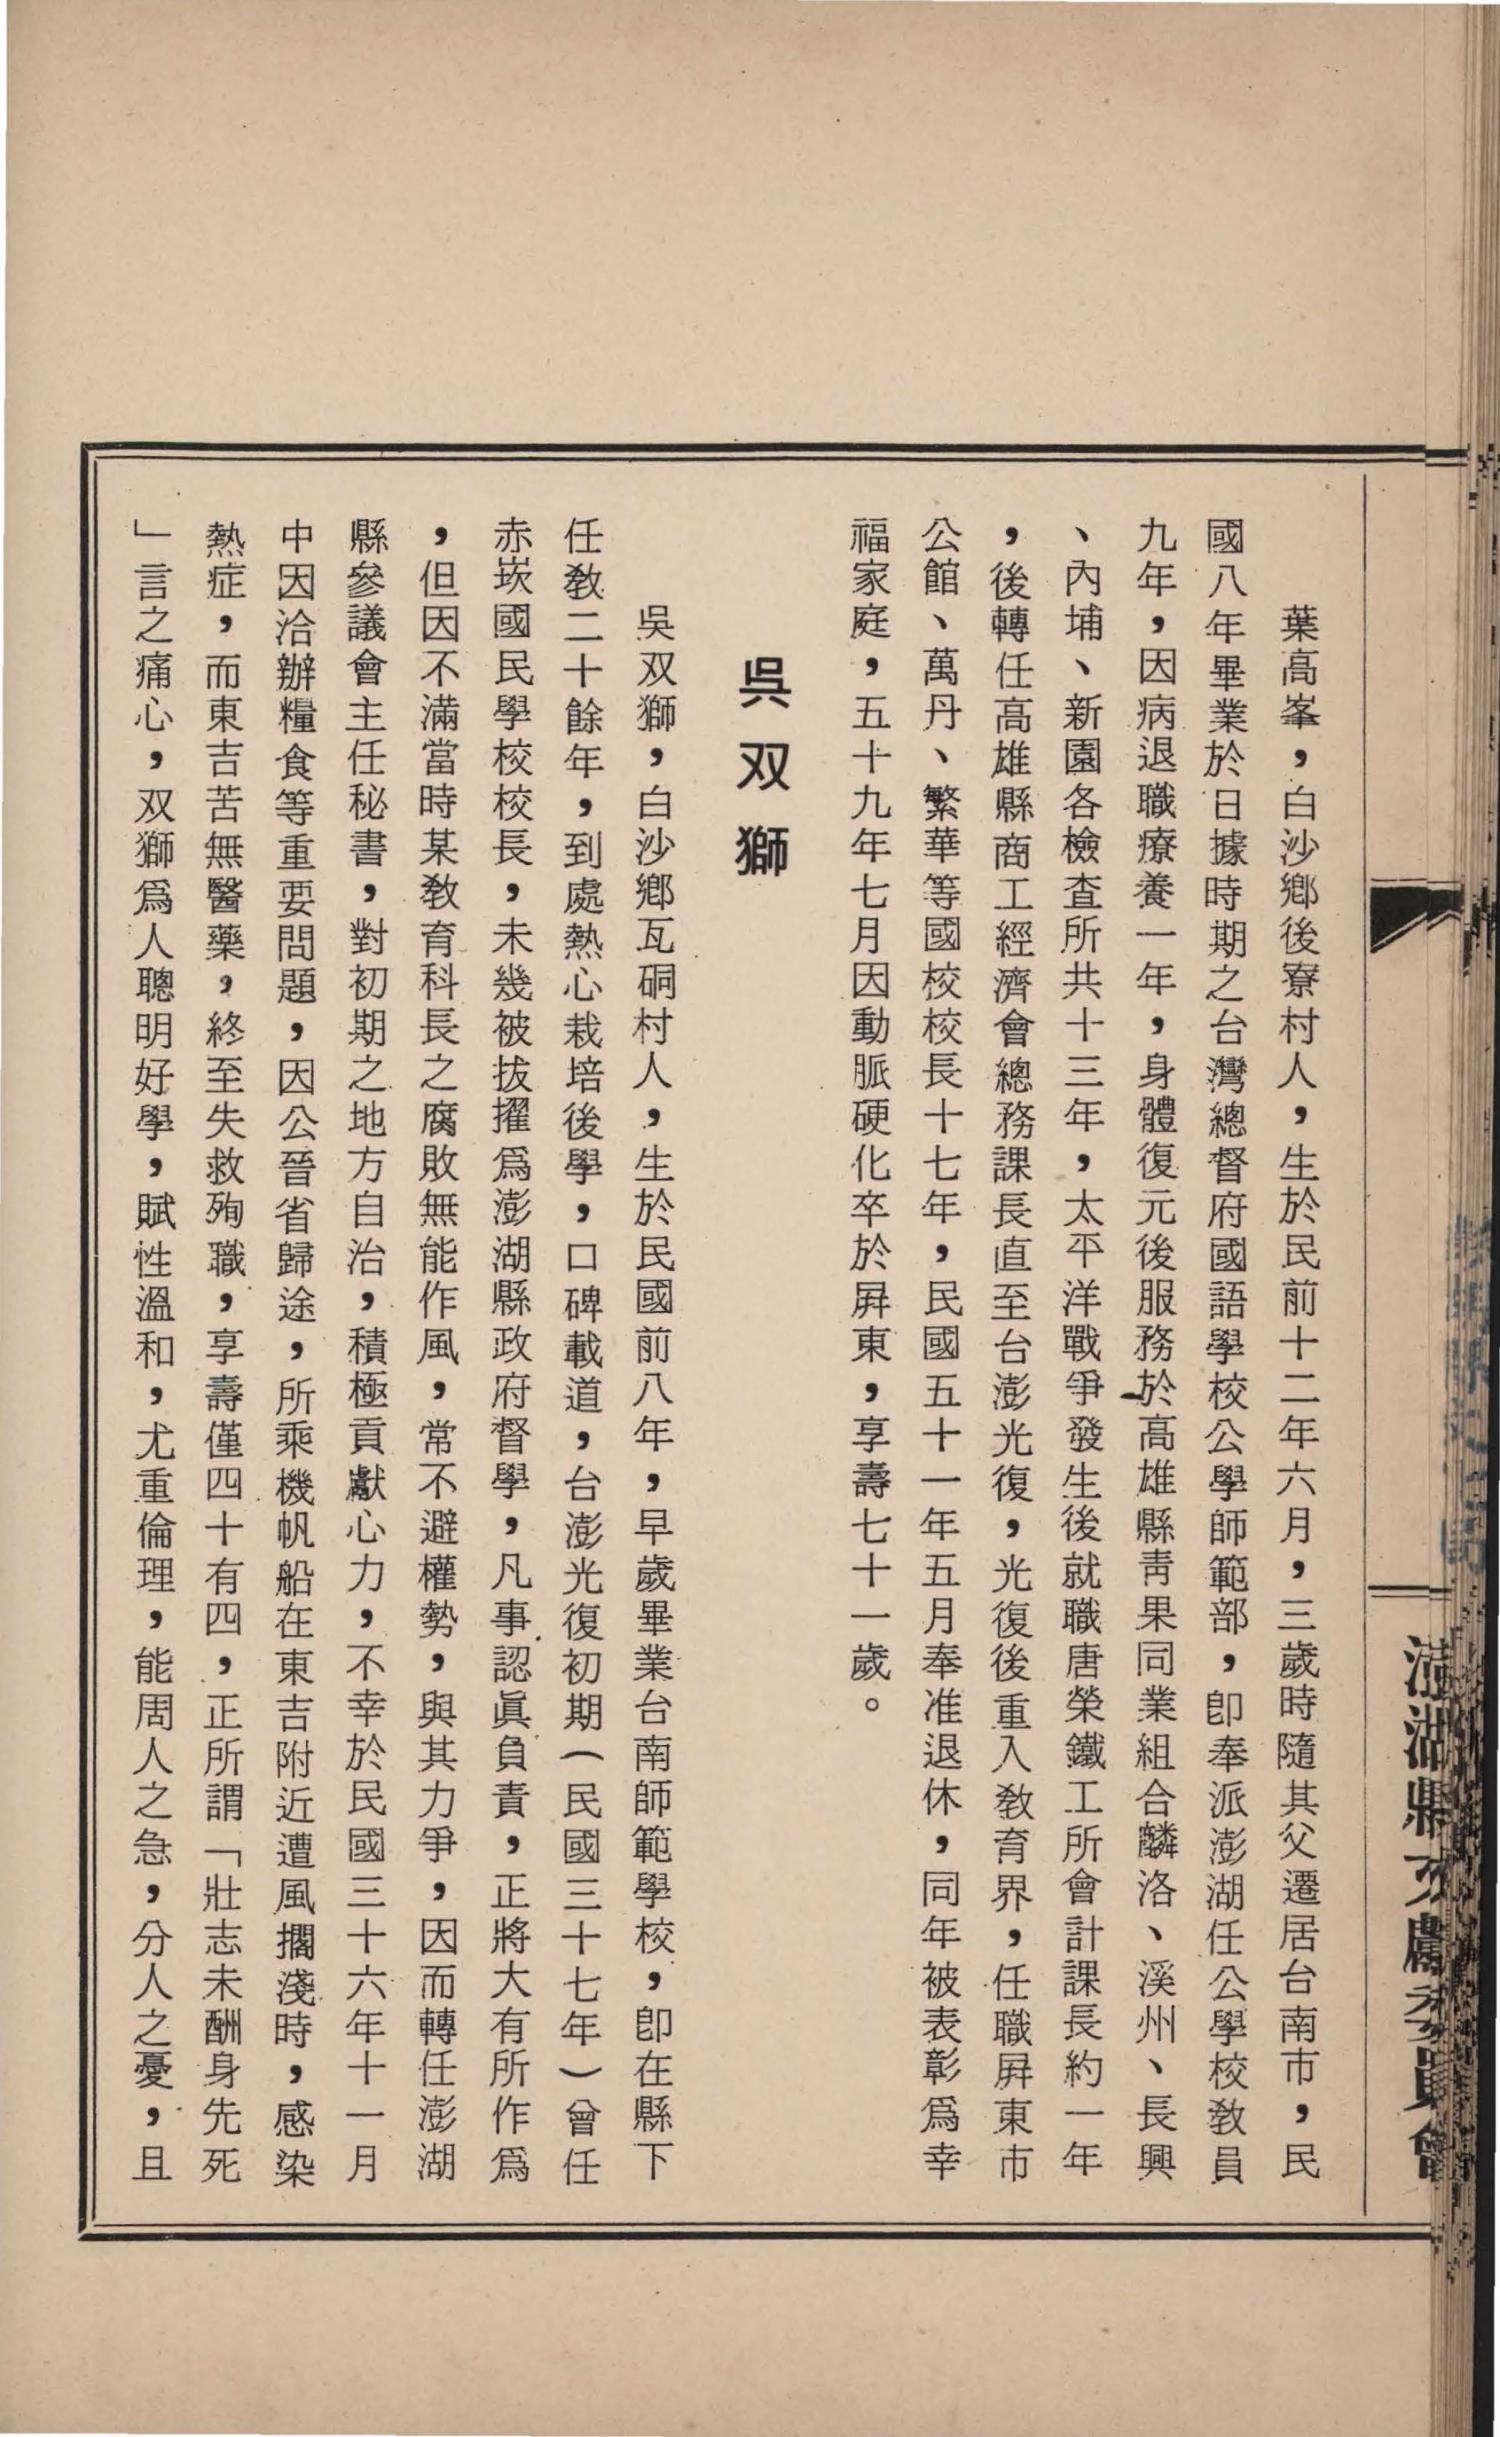 葉高峯，白沙鄉後寮村人，生於民前十二年六月，三歲時隨其父遷居台南市，民
國八年畢業於日據時期之台灣總督府國語學校公學師範部，卽奉派澎湖任公學校教員
九年，因病退職療養一年，身體復元後服務於高雄縣靑果同業組合麟洛、溪州、長興
、內埔、新園各檢查所共十三年，太平洋戰爭發生後就職唐榮鐵工所會計課長約一年
，後轉任高雄縣商工經濟會總務課長直至台澎光復，光復後重入教育界，任職屛東市
公館、萬丹、繁華等國校校長十七年，民國五十一年五月奉准退休，同年被表彰爲幸
福家庭，五十九年七月因動脈硬化卒於屛東，享壽七十一歲。
吳双獅
吳双獅，白沙鄉瓦硐村人，生於民國前八年，早歲畢業台南師範學校，卽在縣下
任教二十餘年，到處熱心栽培後學，口碑載道，台澎光復初期（民國三十七年）曾任
赤崁國民學校校長，未幾被拔擢爲澎湖縣政府督學，凡事認眞負責，正將大有所作爲
，但因不滿當時某教育科長之腐敗無能作風，常不避權勢，與其力爭，因而轉任澎湖
縣參議會主任秘書，對初期之地方自治，積極貢獻心力，不幸於民國三十六年十一月
中因洽辦糧食等重要問題，因公晉省歸途，所乘機帆船在東吉附近遭風擱淺時，感染
熱症，而東吉苦無醫藥，終至失救殉職，享壽僅四十有四，正所謂「壯志未酬身先死
」言之痛心，双獅爲人聰明好學，賦性溫和，尤重倫理，能周人之急，分人之憂，且
澎湖縣文獻委員會